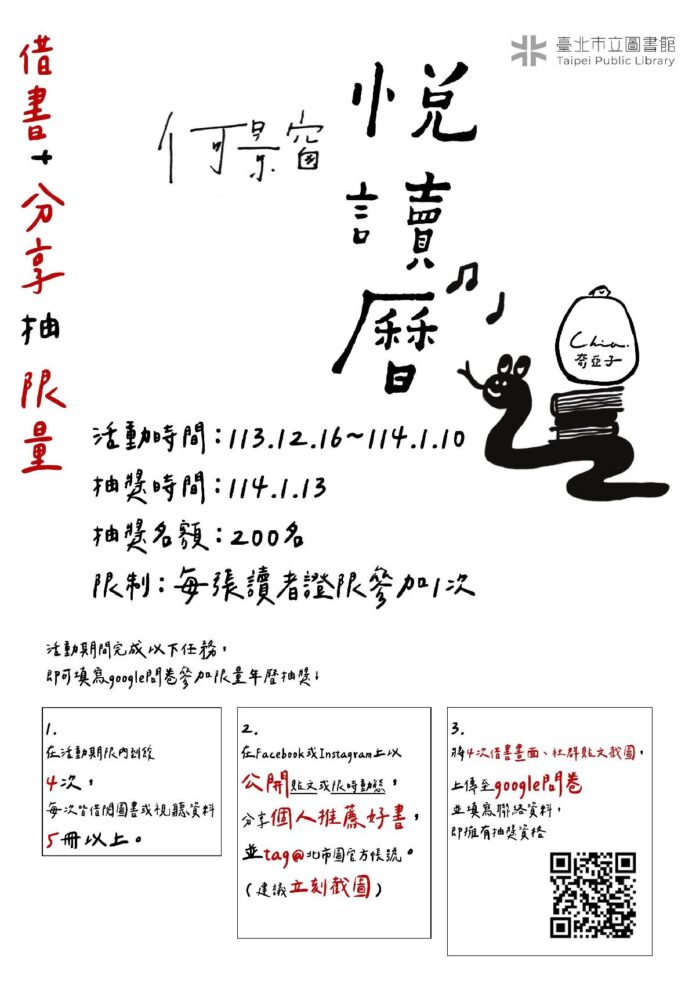 臺北市立圖書館
Taipei Public Library
借書+分享抽限量
何景窗
悅讀曆
Chia.
奇亞子
活動時間：113.12.16~114.1.10
抽獎時間：114.1.13
抽獎名額：200名
限制：每張讀者證限參加1次
活動期間完成以下任務，
即可填寫google問卷參加限量年曆抽獎！
1.
在活動期限內到館
4次，
每次皆借閱圖書或視聽資料
5冊以上。
2.
在Facebook或Instagram上以
公開貼文或限時動態，
分享個人推薦好書，
並tag@北市圖官方帳號。
（建議立刻截圖）
3.
將4次借書畫面、社群貼文截圖，
上傳至google問卷
並填寫聯絡資料，
即擁有抽獎資格